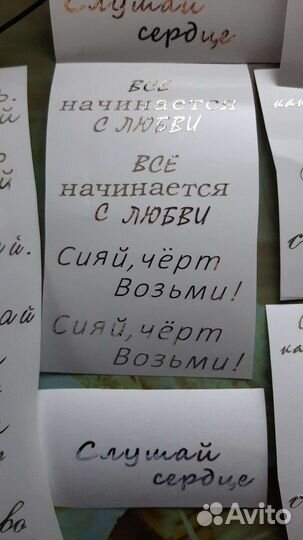 Слушай
сердце
ВСЁ
начинается
С ЛЮБВИ
ВСЁ
начинается
С ЛЮБВИ
Сияй, чёрт
Возьми!
Сияй, чёрт
Возьми!
Слушай
сердце
Avito